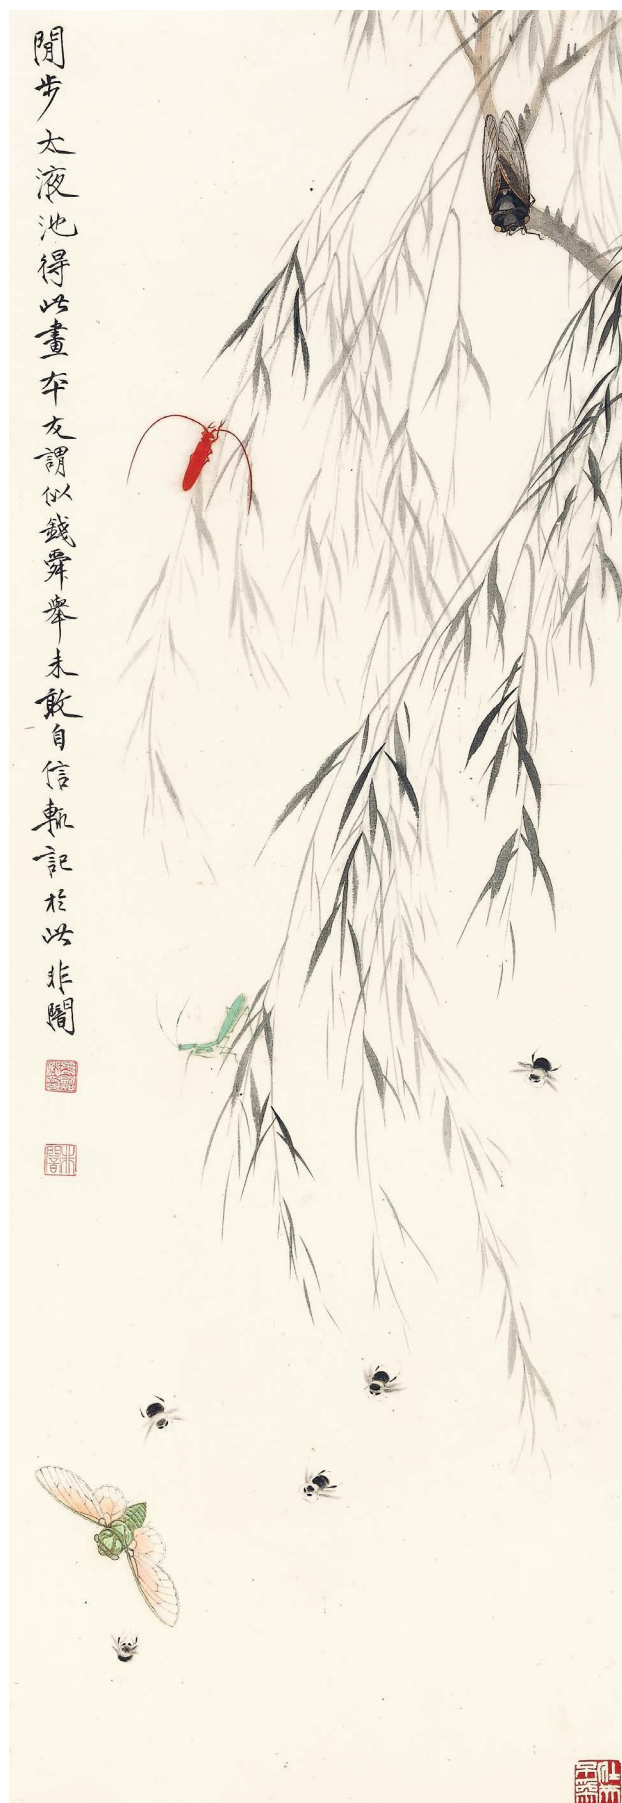 閒步太液池得此畫本友謂似錢舜舉未敢自信輒記於此非闇
非闇